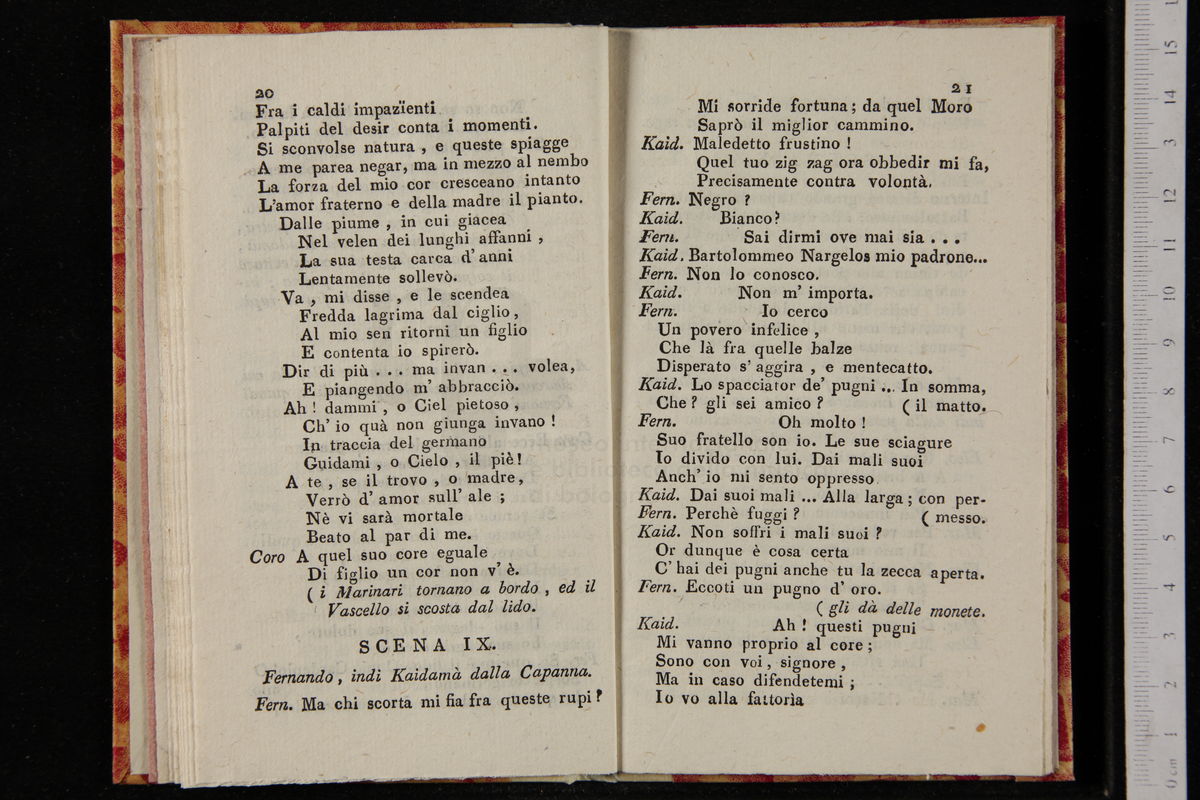 20
Fra i caldi impazïenti
Palpiti del desir conta i momenti.
Si sconvolse natura , e queste spiagge
A me parea negar, ma in mezzo al nembo
La forza del mio cor cresceano intanto
L'amor fraterno e della madre il pianto.
Dalle piume , in cui giacea
Nel velen dei lunghi affanni ,
La sua testa carca d' anni
Lentamente sollevò.
Va , mi disse , e le scendea
Fredda lagrima dal ciglio ,
Al mio sen ritorni un figlio
E contenta io spirerò.
Dir di più . . . ma invan . . . volea,
E piangendo m' abbracciò.
Ah ! dammi , o Ciel pietoso ,
Ch' io quà non giunga invano !
In traccia del germano
Guidami , o Cielo , il piè!
A te , se il trovo , o madre,
Verrò d' amor sull' ale ;
Nè vi sarà mortale
Beato al par di me.
Coro A quel suo core eguale
Di figlio un cor non v' è.
( i Marinari tornano a bordo , ed il
Vascello si scosta dal lido.
SCENA IX.
Fernando , indi Kaidamà dalla Capanna.
Fern. Ma chi scorta mi fia fra queste rupi ?
21
Mi sorride fortuna ; da quel Moro
Saprò il miglior cammino.
Kaid. Maledetto frustino !
Quel tuo zig zag ora obbedir mi fa,
Precisamente contra volontà.
Fern. Negro ?
Kaid. Bianco?
Fern. Sai dirmi ove mai sia . . .
Kaid. Bartolommeo Nargelos mio padrone...
Fern. Non lo conosco.
Kaid. Non m' importa.
Fern. Io cerco
Un povero infelice ,
Che là fra quelle balze
Disperato s' aggira , e mentecatto.
Kaid. Lo spacciator de' pugni ... In somma,
Che ? gli sei amico ? ( il matto.
Fern. Oh molto !
Suo fratello son io. Le sue sciagure
Io divido con lui. Dai mali suoi
Anch' io mi sento oppresso
Kaid. Dai suoi mali ... Alla larga ; con per-
Fern. Perchè fuggi ? ( messo.
Kaid. Non soffri i mali suoi ?
Or dunque è cosa certa
C' hai dei pugni anche tu la zecca aperta.
Fern. Eccoti un pugno d' oro.
( gli dà delle monete.
Kaid. Ah ! questi pugni
Mi vanno proprio al core ;
Sono con voi , signore ,
Ma in caso difendetemi ;
Io vo alla fattorìa